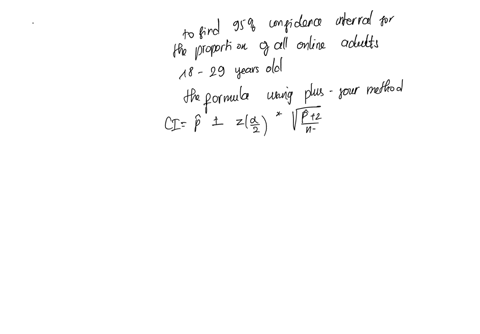 to find 95% confidence interval for
the proportion of all online adults
18 - 29 years old
the formula using plus-four method
CI = p̂ ± z(α/2) * √(p̂+2/n-